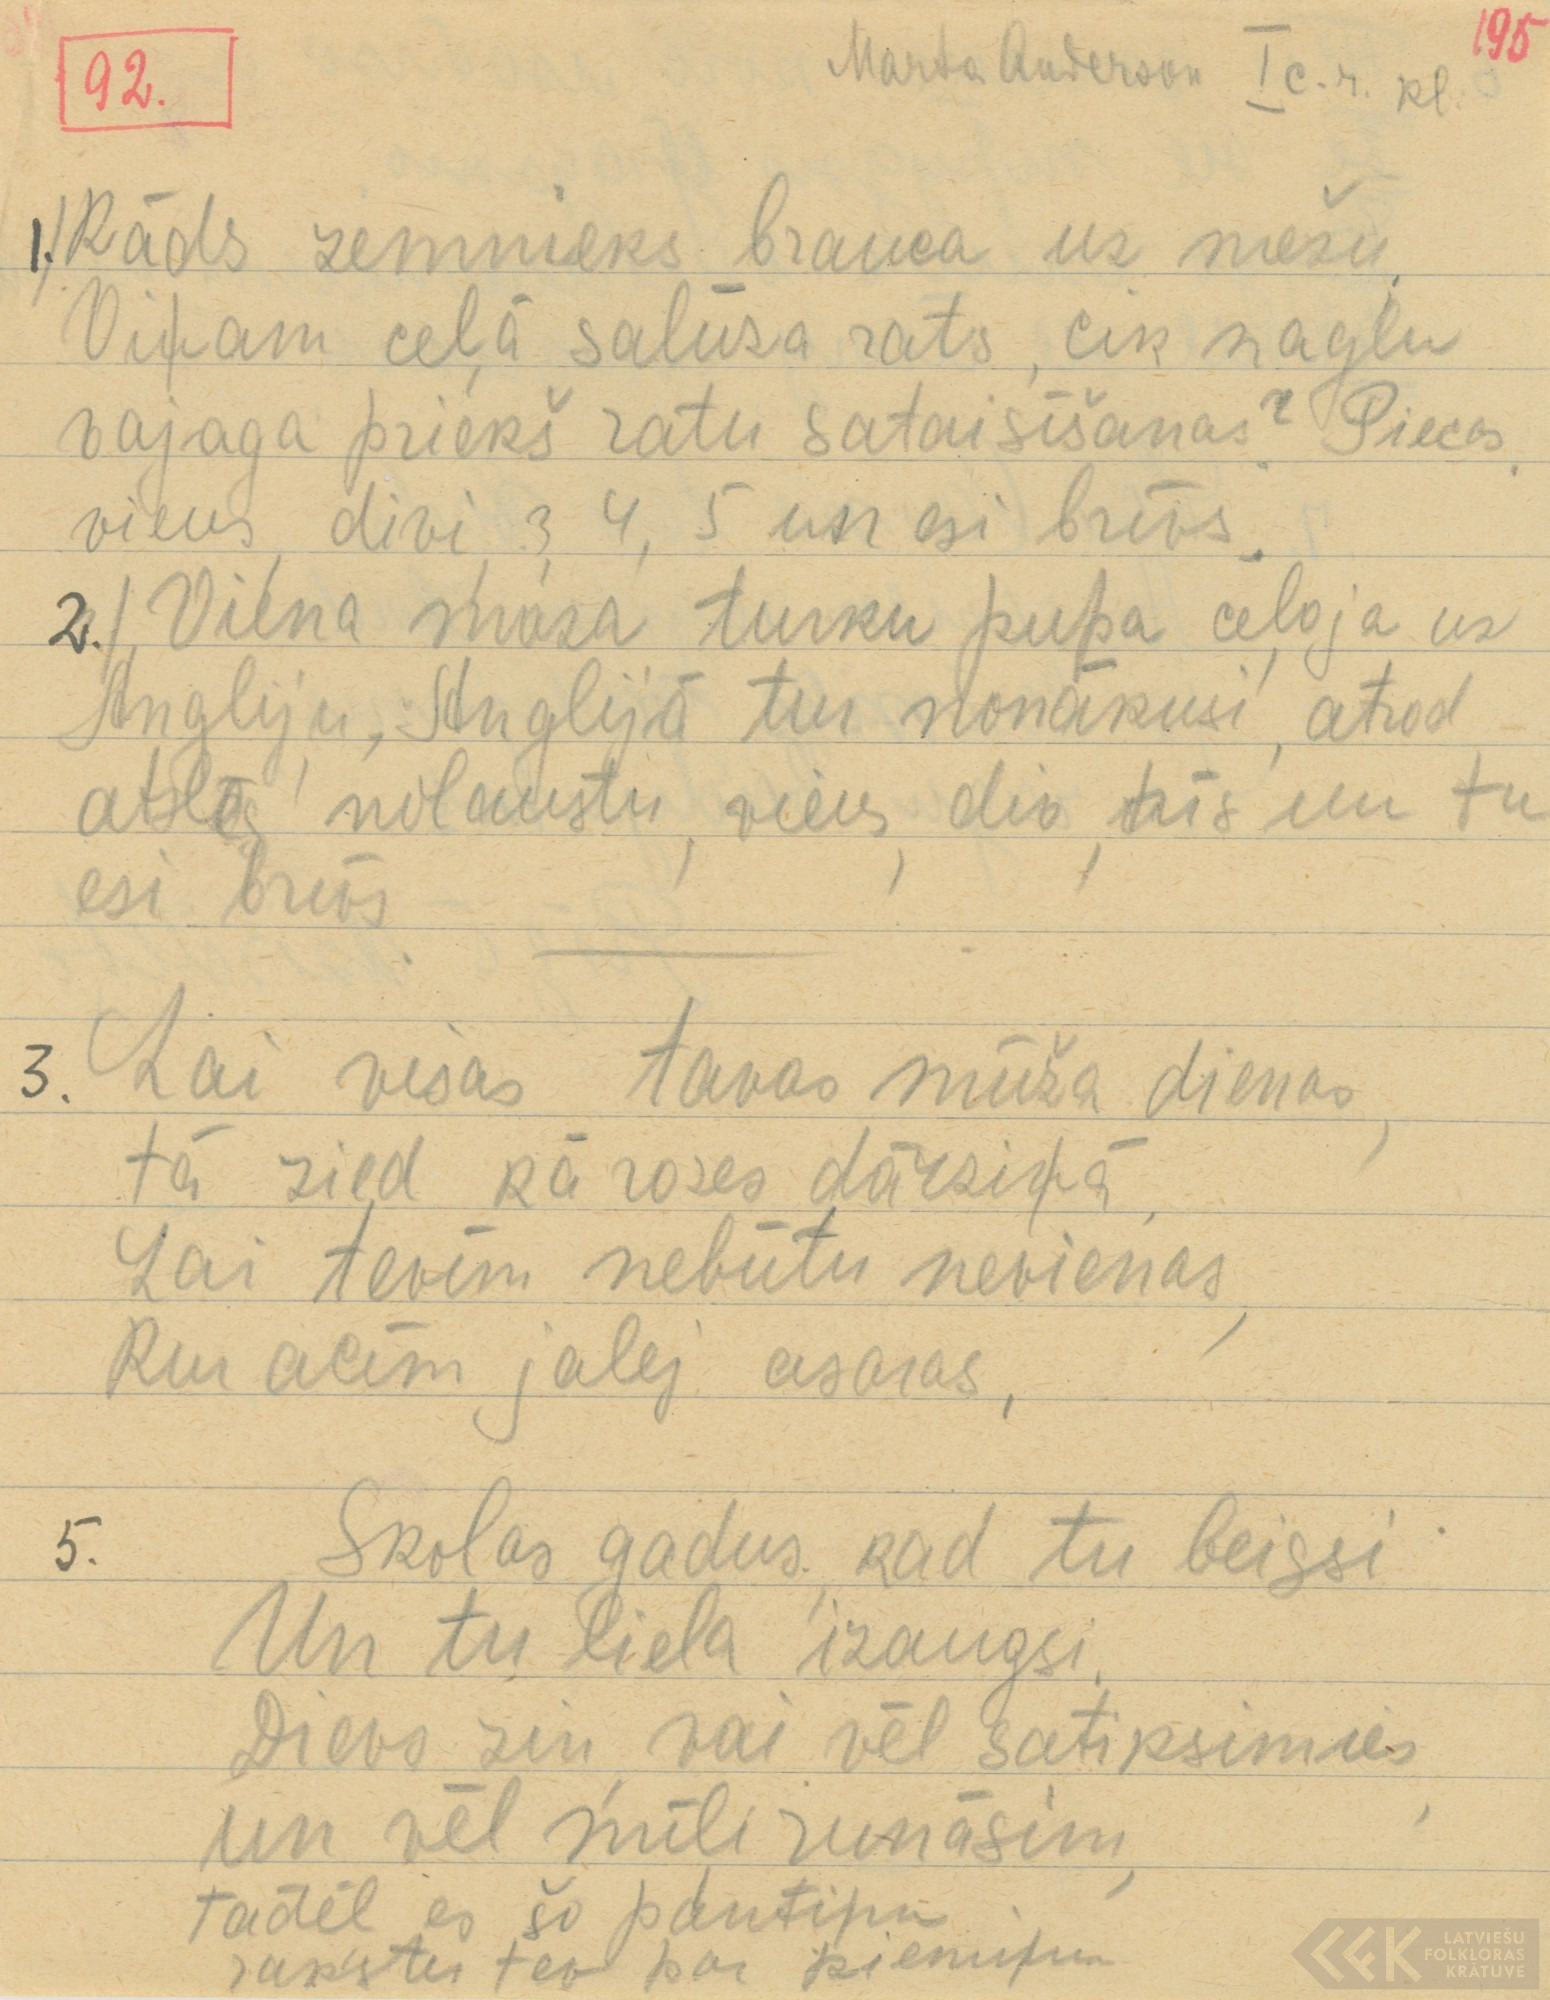 92.
195
Marta Anderson I c.r. kl.
1.) Kāds zemnieks brauca uz mežu,
Viņam ceļā salūza rats, cik naglu
vajaga priekš ratu sataisīšanas? Piecas.
viens, divi, 3, 4, 5 un esi brīvs.
2.) Viena maza turku pupa ceļoja uz
Angliju, Anglijā tur nonākusi, atrod
atslēg nolaustu, viens, div, trīs un tu
esi brīvs
3. Lai visas tavas mūža dienas,
tā zied kā rozes dārziņā,
Lai tevīm nebūtu nevienas,
Kur acīm jalej asaras,
5. Skolas gadus, kad tu beigsi
Un tu liela izaugsi,
Dievs zin, vai vēl satiksimies,
un vēl mīļi runāsim,
tadēļ es šo pantiņu
rakstu tev par piemiņu
LATVIEŠU
FOLKLORAS
KRĀTUVE